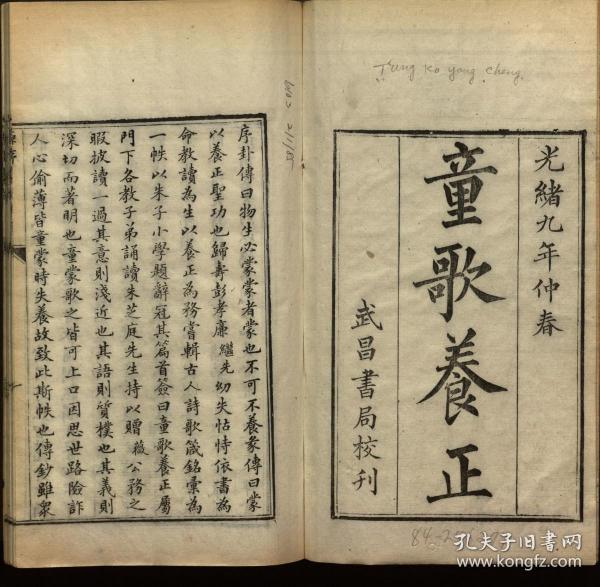 Tung Ko yang Cheng.
光緒九年仲春
童歌養正
武昌書局校刊
序卦傳曰物生必蒙蒙者蒙也不可不養彖傳曰蒙
以養正聖功也歸壽彭孝廉繼先幼失怙恃依書為
命教讀為生以養正為務嘗輯古人詩歌箴銘彙為
一帙以朱子小學題辭冠其篇首簽曰童歌養正屬
門下各教子弟誦讀朱芝庭先生持以贈薇公務之
暇披讀一過其意則淺近也其語則質樸也其義則
深切而著明也童蒙歌之皆可上口因思世路險詐
人心偷薄皆童蒙時失養故致此斯帙也傳鈔雖衆
孔夫子旧书网
www.kongfz.com